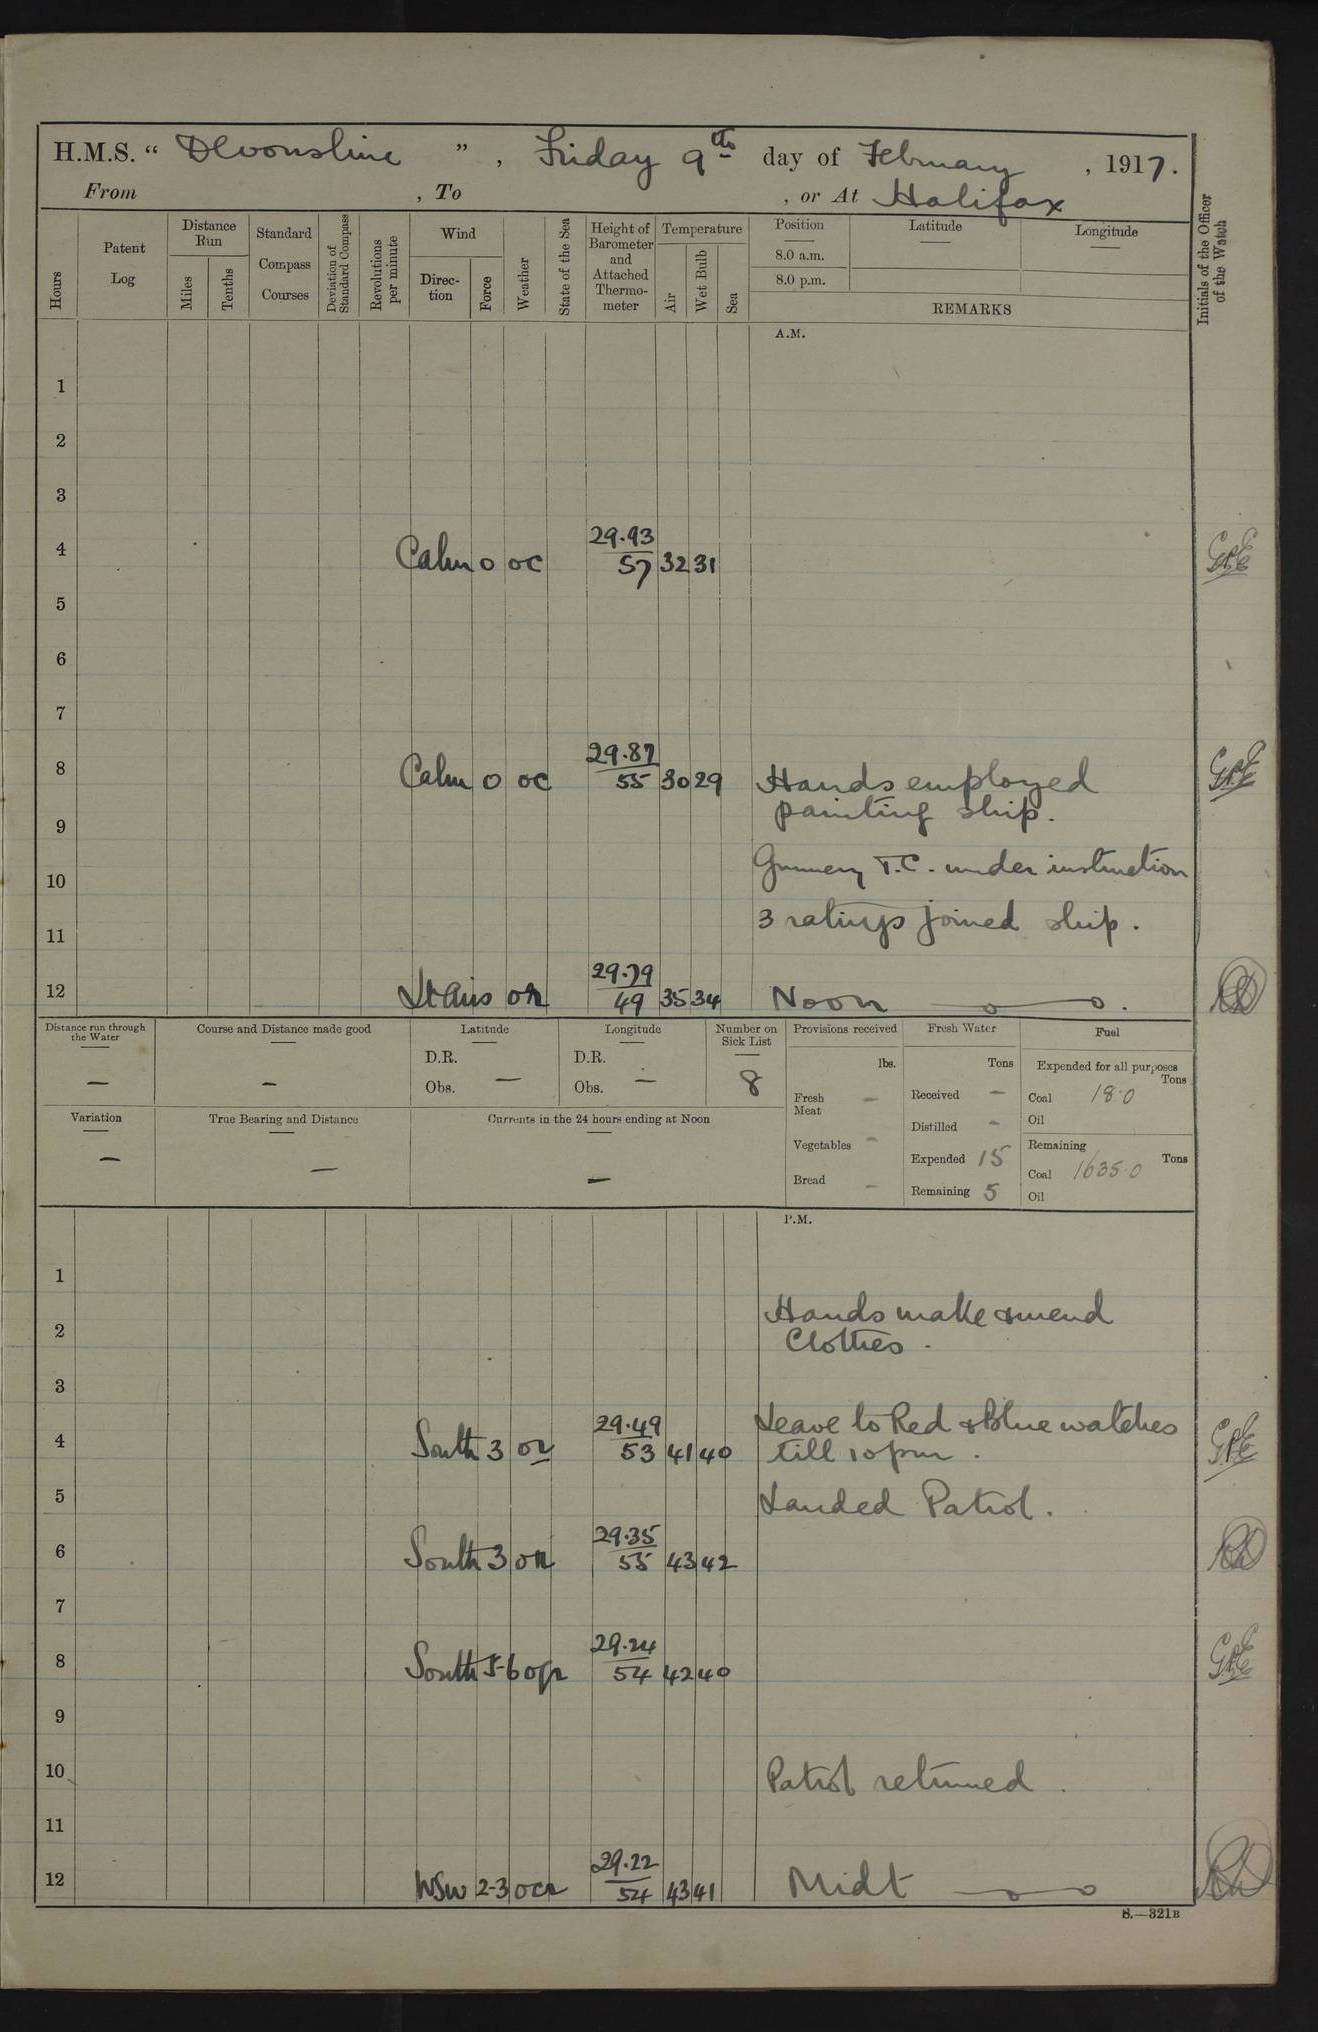 H.M.S. “ Devonshire ” , Friday 9th day of February , 1917.
From , To , or At Halifax
Hours
Patent Log
Distance Run
Miles
Tenths
Standard Compass Courses
Deviation of Standard Compass
Revolutions per minute
Wind
Direc-tion
Force
Weather
State of the Sea
Height of Barometer and Attached Thermo-meter
Temperature
Air
Wet Bulb
Sea
Position
8.0 a.m.
8.0 p.m.
Latitude
Longitude
REMARKS
Initials of the Officer of the Watch
A.M.
1
2
3
4 Calm 0 oc 29.93 57 32 31
5
6
7
8 Calm 0 oc 29.87 55 30 29 Hands employed
painting ship.
9
Gunnery T.C. under instruction
10
3 ratings joined ship.
11
12 Lt Airs or 29.79 49 35 34 Noon
Distance run through the Water —
Course and Distance made good —
Latitude
D.R.
Obs. —
Longitude
D.R.
Obs. —
Number on Sick List
8
Provisions received
lbs.
Fresh Meat —
Vegetables —
Bread —
Fresh Water
Tons
Received —
Distilled —
Expended 15
Remaining 5
Fuel
Expended for all purposes
Tons
Coal 18.0
Oil
Remaining
Tons
Coal 1635.0
Oil
Variation —
True Bearing and Distance —
Currents in the 24 hours ending at Noon —
P.M.
1
Hands make & mend
2
Clothes.
3
Leave to Red & Blue watches
4 South 3 or 29.49 53 41 40 till 10 pm.
5 Landed Patrol.
6 South 3 or 29.35 55 43 42
7
8 South 5-6 oqr 29.24 54 42 40
9
10 Patrol returned.
11
12 WSW 2-3 ocr 29.22 54 43 41 Midt
S.—321B